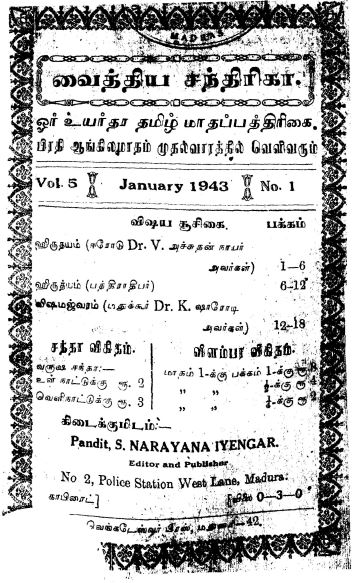 MADRAS
வைத்திய சந்திரிகா.
ஓர் உயர்தர தமிழ் மாதப்பத்திரிகை.
பிரதி ஆங்கிலமாதம் முதல்வாரத்தில் வெளிவரும்
Vol. 5 January 1943 No. 1
விஷய சூசிகை. பக்கம்
ஹிருதயம் (ஈரோடு Dr. V. அச்சுதன் நாயர்
அவர்கள்) 1—6
ஹிருதயம் (பத்திராதிபர்) 6-12
விஷமஜ்வரம் (Dr. K. ஷாரோடி
அவர்கள்) 12-18
சந்தா விகிதம். விளம்பர விகிதம்.
வருஷ சந்தா:— மாதம் 1-க்கு பக்கம் 1-க்கு ரூ 8
உள் நாட்டுக்கு ரூ. 2 „ „ ½-க்கு ரூ
வெளிநாட்டுக்கு ரூ. 3 „ „ ¼-க்கு ரூ 2
கிடைக்குமிடம்:—
Pandit, S. NARAYANA IYENGAR.
Editor and Publisher
No 2, Police Station West Lane, Madura.
காபிரைட்] 0—3—0
வெங்கடேஸ்வர பிரஸ், மதுரை—42